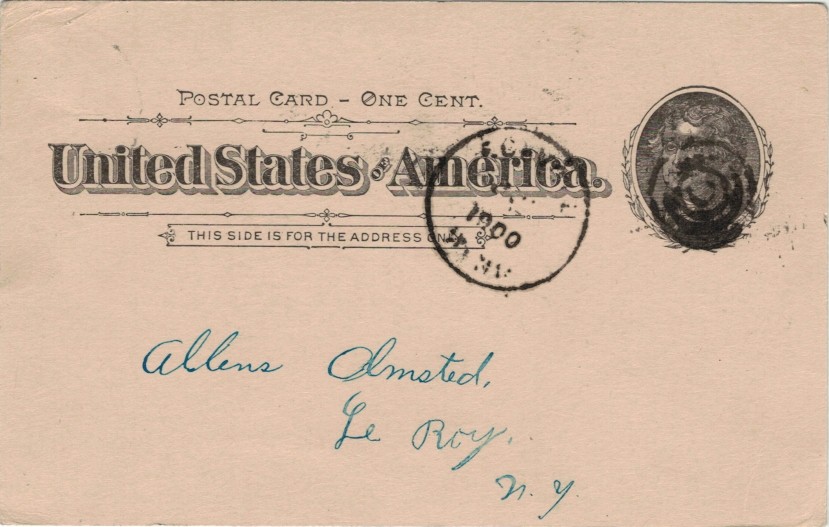 POSTAL CARD – ONE CENT.
United States OF America.
THIS SIDE IS FOR THE ADDRESS ONLY.
1900
Allens Olmsted,
Le Roy,
N. Y.